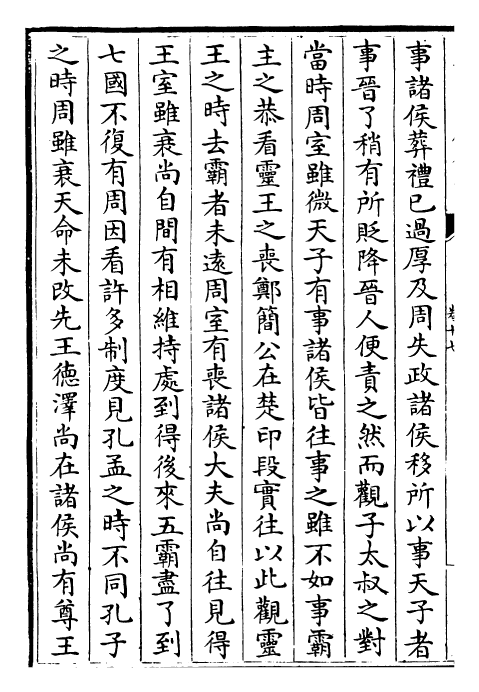 事諸侯葬禮已過厚及周失政諸侯移所以事天子者
事晉了稍有所貶降晉人便責之然而觀子太叔之對
當時周室雖微天子有事諸侯皆往事之雖不如事霸
主之恭看靈王之喪鄭簡公在楚印段實往以此觀靈
王之時去霸者未逺周室有喪諸侯大夫尚自往見得
王室雖衰尚自間有相維持處到得後來五霸盡了到
七國不復有周因看許多制度見孔孟之時不同孔子
之時周雖衰天命未改先王德澤尚在諸侯尚有尊王